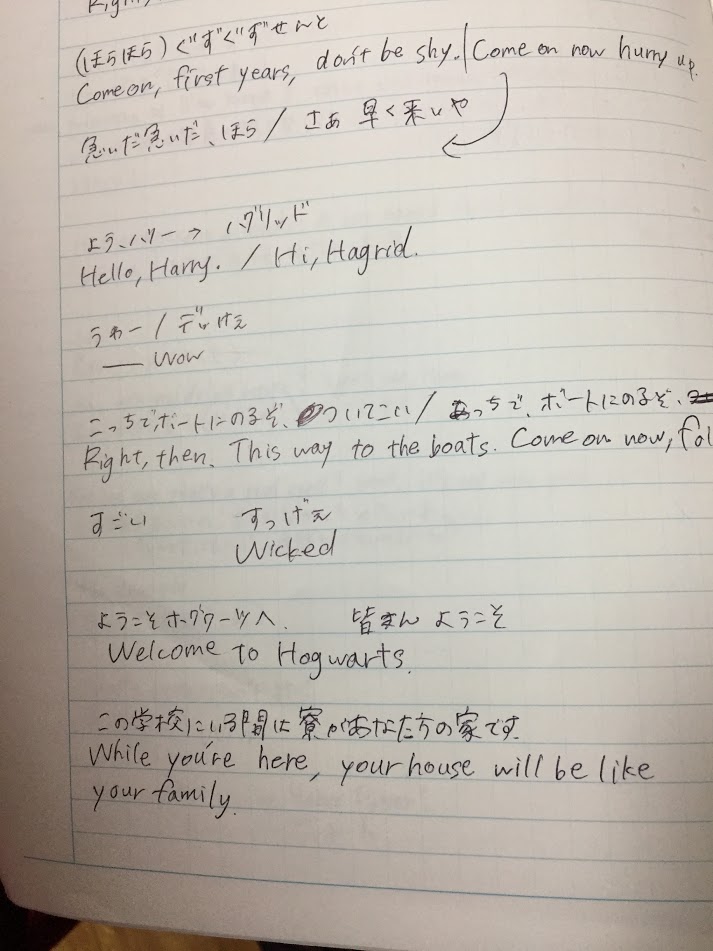 (ほらほら) ぐずぐずせんと
Come on, first years, don't be shy. / Come on now hurry up.
急いだ急いだ、ほら / さあ 早く来いや
よう、ハリー → ハグリッド
Hello, Harry. / Hi, Hagrid.
うわー / でっけぇ
— Wow
こっちで、ボートにのるぞ、ついてこい / あっちで、ボートにのるぞ、
Right, then. This way to the boats. Come on now, fol
すごい すっげぇ
Wicked
ようこそホグワーツへ. 皆さん ようこそ
Welcome to Hogwarts.
この学校にいる間は寮があなた方の家です.
While you're here, your house will be like
your family.